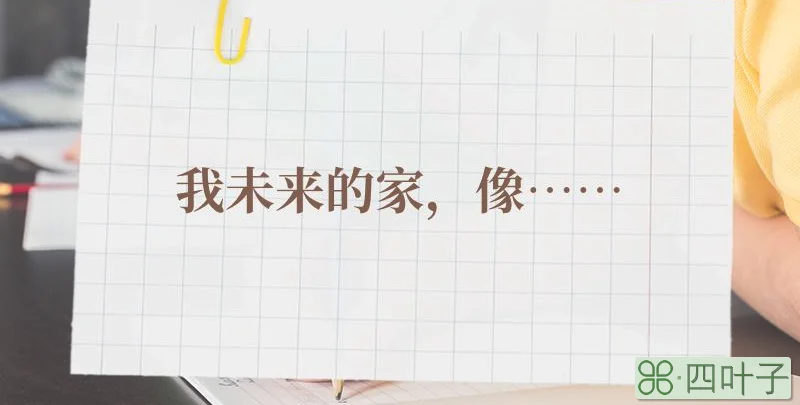 我未来的家，像……
四叶子